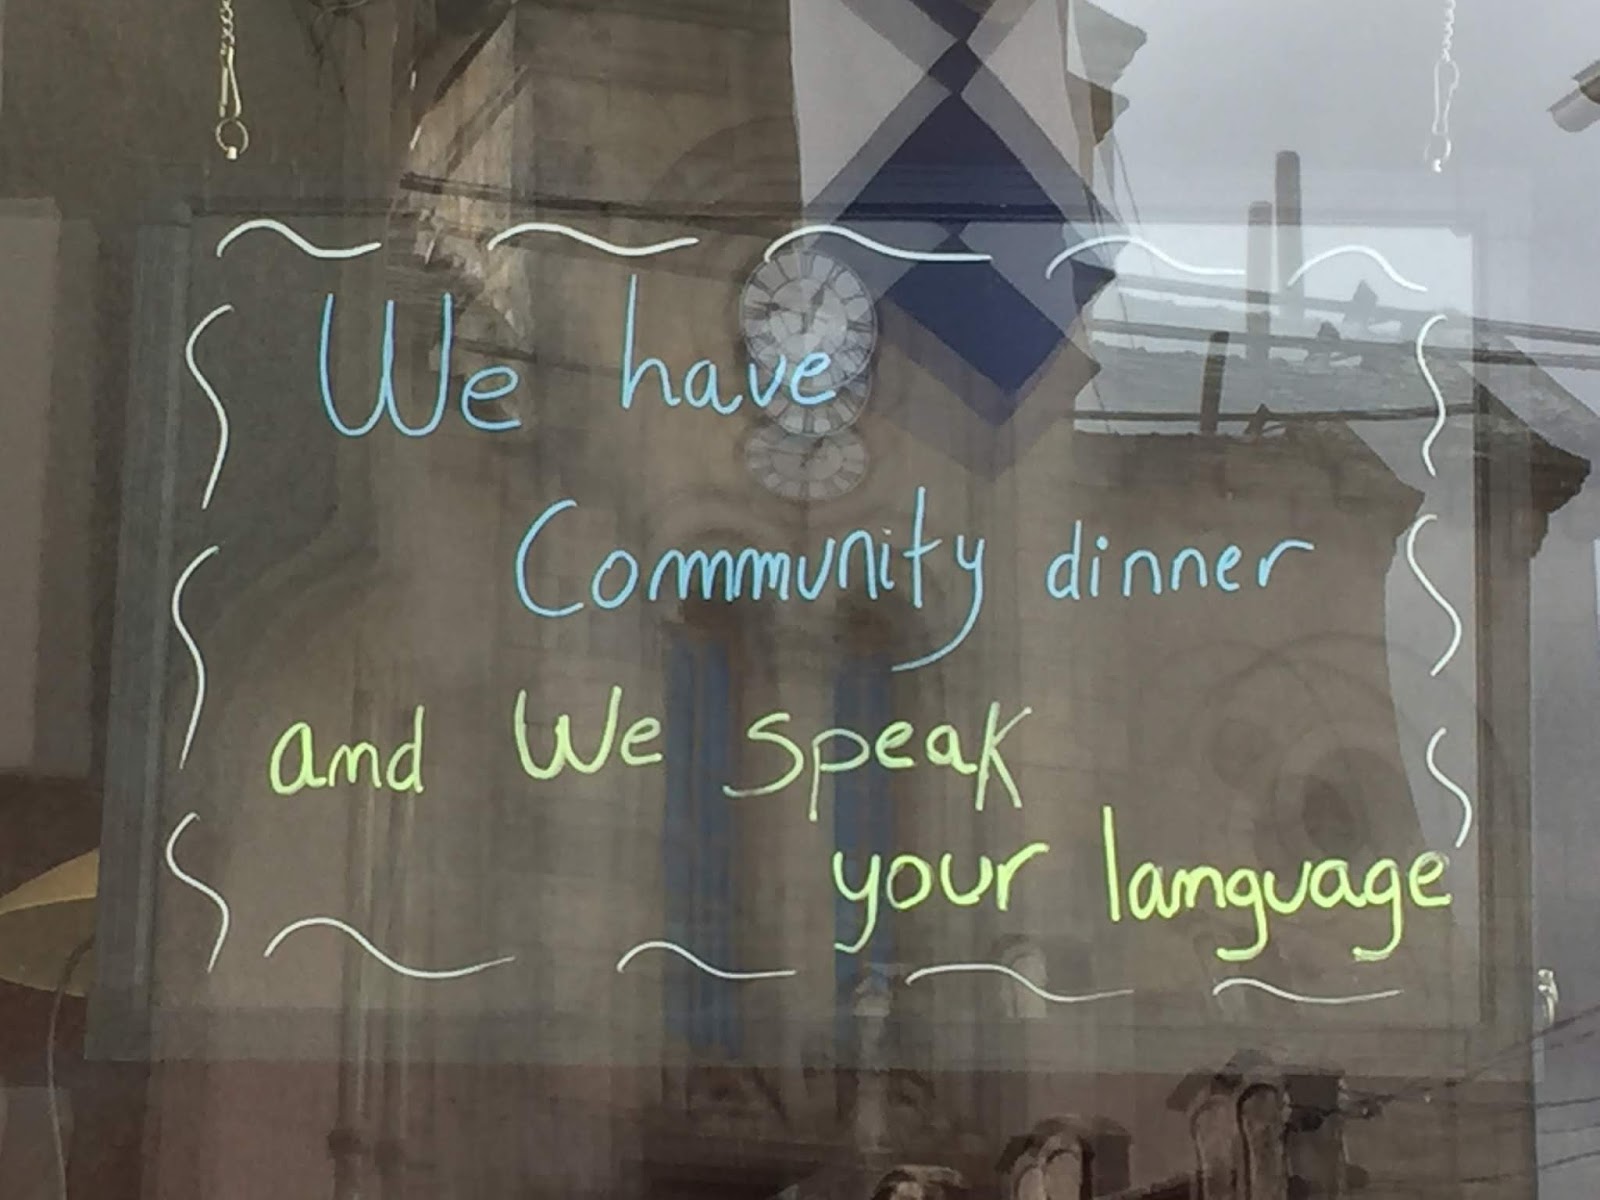 We have
Commmunity dinner
and We speak
your language